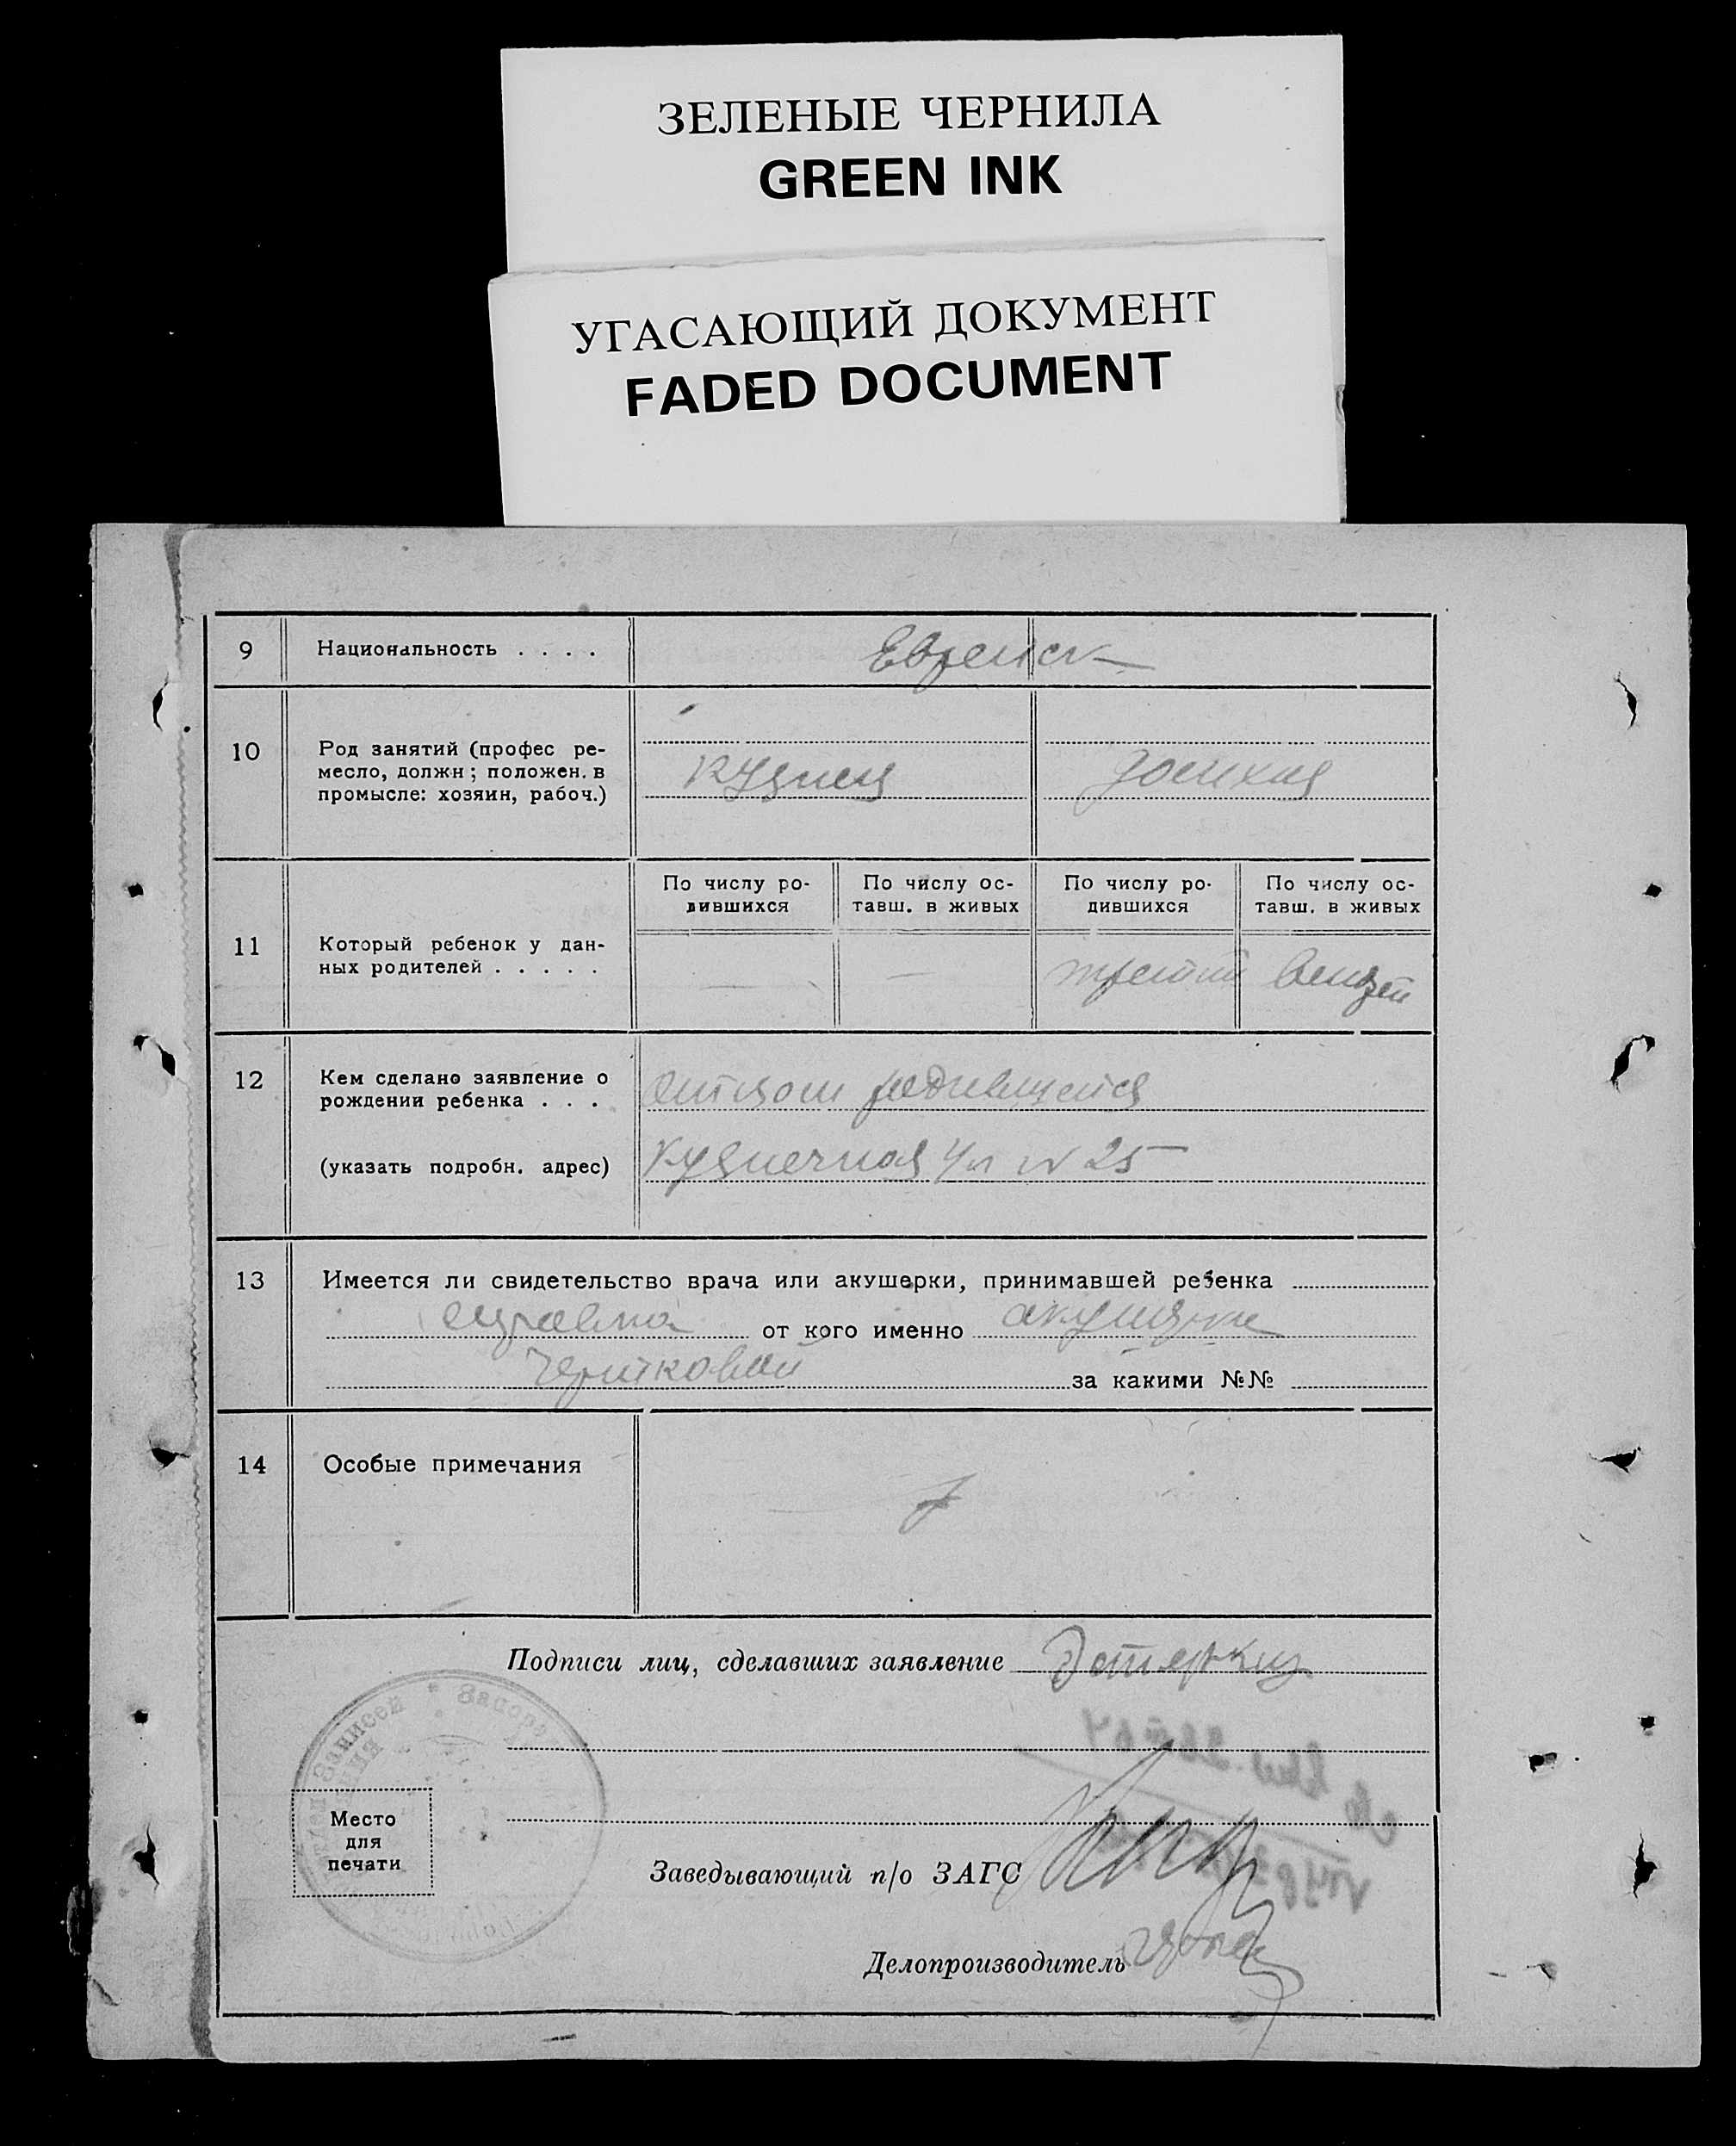 ЗЕЛЕНЫЕ ЧЕРНИЛА
GREEN INK
УГАСАЮЩИЙ ДОКУМЕНТ
FADED DOCUMENT
9 Национальность . . . . Еврейск
10 Род занятий (профес ре-
месло, должн; положен. в
промысле: хозяин, рабоч.)
кузнец домхоз
11 Который ребенок у дан-
ных родителей . . . . .
По числу ро-
дившихся
По числу ос-
тавш. в живых
По числу ро-
дившихся
По числу ос-
тавш. в живых
— — третий
12 Кем сделано заявление о
рождении ребенка . . .
отцом родившейся
(указать подробн. адрес) Кузнечная ул № 25
13 Имеется ли свидетельство врача или акушерки, принимавшей ребенка
справка от кого именно акушерки
за какими №№
14 Особые примечания
Подписи лиц, сделавших заявление Эстеркин
Записей * Запор
Место
для
печати
Заведывающий п/о ЗАГС
Делопроизводитель